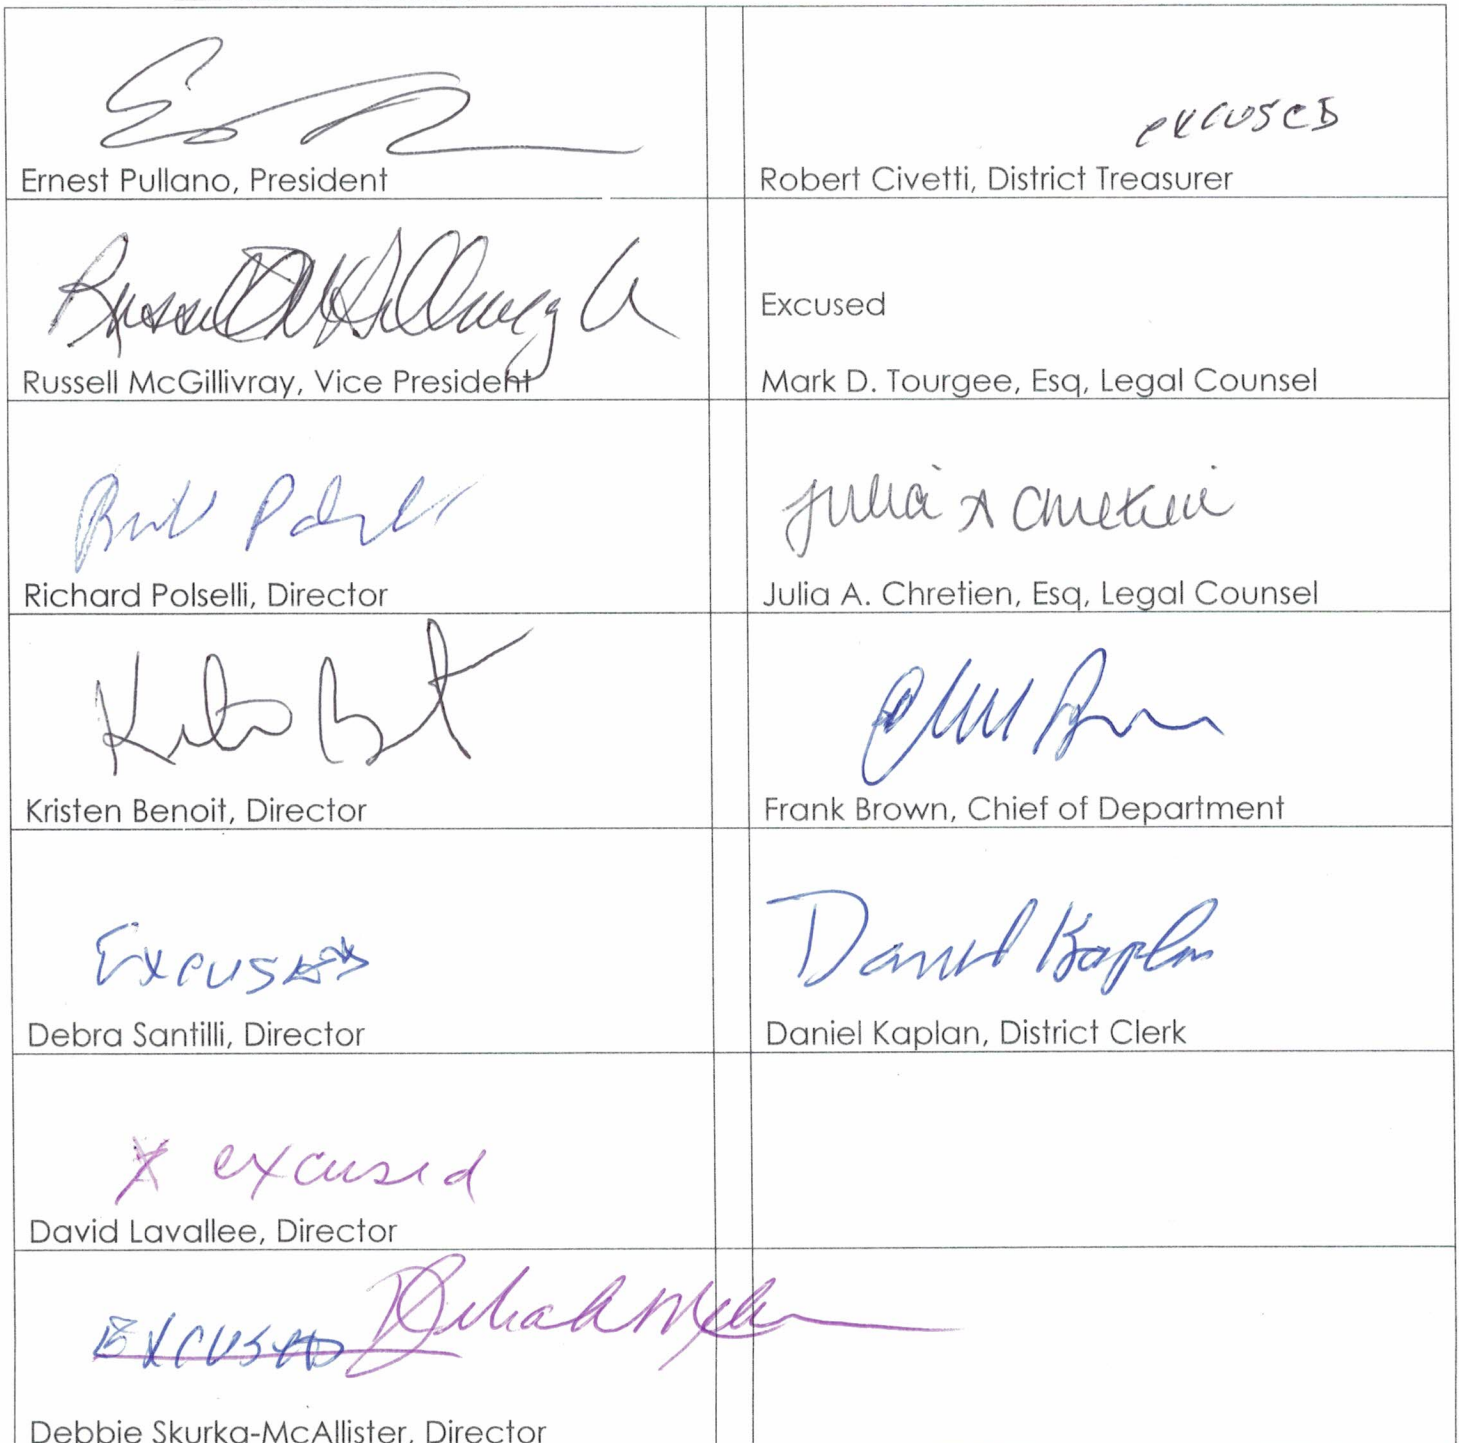 Ernest Pullano, President
excused
Robert Civetti, District Treasurer
Russell McGillivray
Russell McGillivray, Vice President
Excused
Mark D. Tourgee, Esq, Legal Counsel
Richard Polselli, Director
Julia A Chretien
Julia A. Chretien, Esq, Legal Counsel
Kristen Benoit, Director
Frank Brown, Chief of Department
Excused
Debra Santilli, Director
Daniel Kaplan
Daniel Kaplan, District Clerk
X excused
David Lavallee, Director
Excused
Debbie Skurka-McAllister, Director